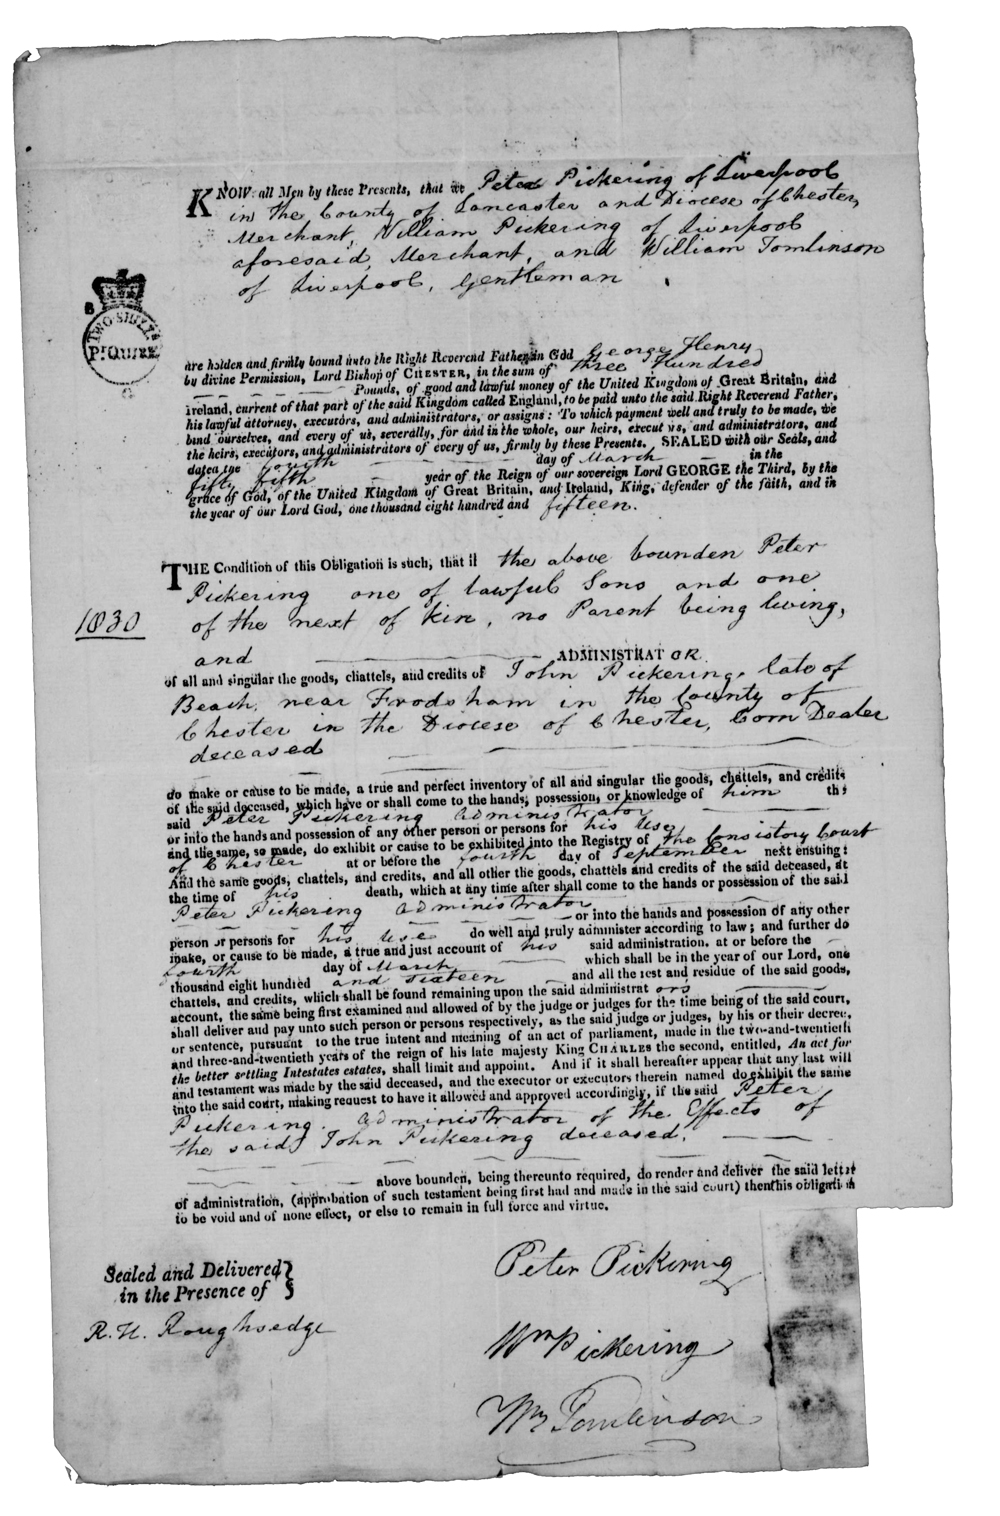 KNOW all Men by these Presents, that we Peter Pickering of Liverpool
in the County of Lancaster and Diocese of Chester,
Merchant, William Pickering of Liverpool
aforesaid, Merchant, and William Tomlinson
of Liverpool, Gentleman
TWO SHILLS
PR QUIRE
are holden and firmly bound unto the Right Reverend Father in God George Henry
by divine Permission, Lord Bishop of CHESTER, in the sum of three Hundred
Pounds, of good and lawful money of the United Kingdom of Great Britain, and
Ireland, current of that part of the said Kingdom called England, to be paid unto the said Right Reverend Father,
his lawful attorney, executors, and administrators, or assigns: To which payment well and truly to be made, we
bind ourselves, and every of us, severally, for and in the whole, our heirs, execut rs, and administrators, and
the heirs, executors, and administrators of every of us, firmly by these Presents. SEALED with our Seals, and
dated the fourth day of March in the
fifty fifth year of the Reign of our sovereign Lord GEORGE the Third, by the
grace of God, of the United Kingdom of Great Britain, and Ireland, King, defender of the faith, and in
the year of our Lord God, one thousand eight hundred and fifteen.
THE Condition of this Obligation is such, that if the above bounden Peter
Pickering one of lawful Sons and one
1830
of the next of Kin, no Parent being living,
and ADMINISTRATOR
of all and singular the goods, chattels, and credits of John Pickering, late of
Beach, near Frodsham in the County of
Chester in the Diocese of Chester, Corn Dealer
deceased
do make or cause to be made, a true and perfect inventory of all and singular the goods, chattels, and credits
of the said deceased, which have or shall come to the hands, possession, or knowledge of him the
said Peter Pickering administrator
or into the hands and possession of any other person or persons for his Use
and the same, so made, do exhibit or cause to be exhibited into the Registry of the Consistory Court
of Chester at or before the fourth day of September next ensuing:
And the same goods, chattels, and credits, and all other the goods, chattels and credits of the said deceased, at
the time of his death, which at any time after shall come to the hands or possession of the said
Peter Pickering administrator
or into the hands and possession of any other
person or persons for his Use do well and truly administer according to law; and further do
make, or cause to be made, a true and just account of his said administration. at or before the
fourth day of March which shall be in the year of our Lord, one
thousand eight hundred and sixteen and all the rest and residue of the said goods,
chattels, and credits, which shall be found remaining upon the said administrat ors
account, the same being first examined and allowed of by the judge or judges for the time being of the said court,
shall deliver and pay unto such person or persons respectively, as the said judge or judges, by his or their decree,
or sentence, pursuant to the true intent and meaning of an act of parliament, made in the two-and-twentieth
and three-and-twentieth years of the reign of his late majesty King CHARLES the second, entitled, An act for
the better settling Intestates estates, shall limit and appoint. And if it shall hereafter appear that any last will
and testament was made by the said deceased, and the executor or executors therein named do exhibit the same
into the said court, making request to have it allowed and approved accordingly, if the said Peter
Pickering. administrator of the Effects of
the said John Pickering deceased.
above bounden, being thereunto required, do render and deliver the said letter
of administration, (approbation of such testament being first had and made in the said court) then this obligation
to be void and of none effect, or else to remain in full force and virtue.
Sealed and Delivered
in the Presence of
R. H. Roughsedge
Peter Pickering
Wm Pickering
Wm Tomlinson